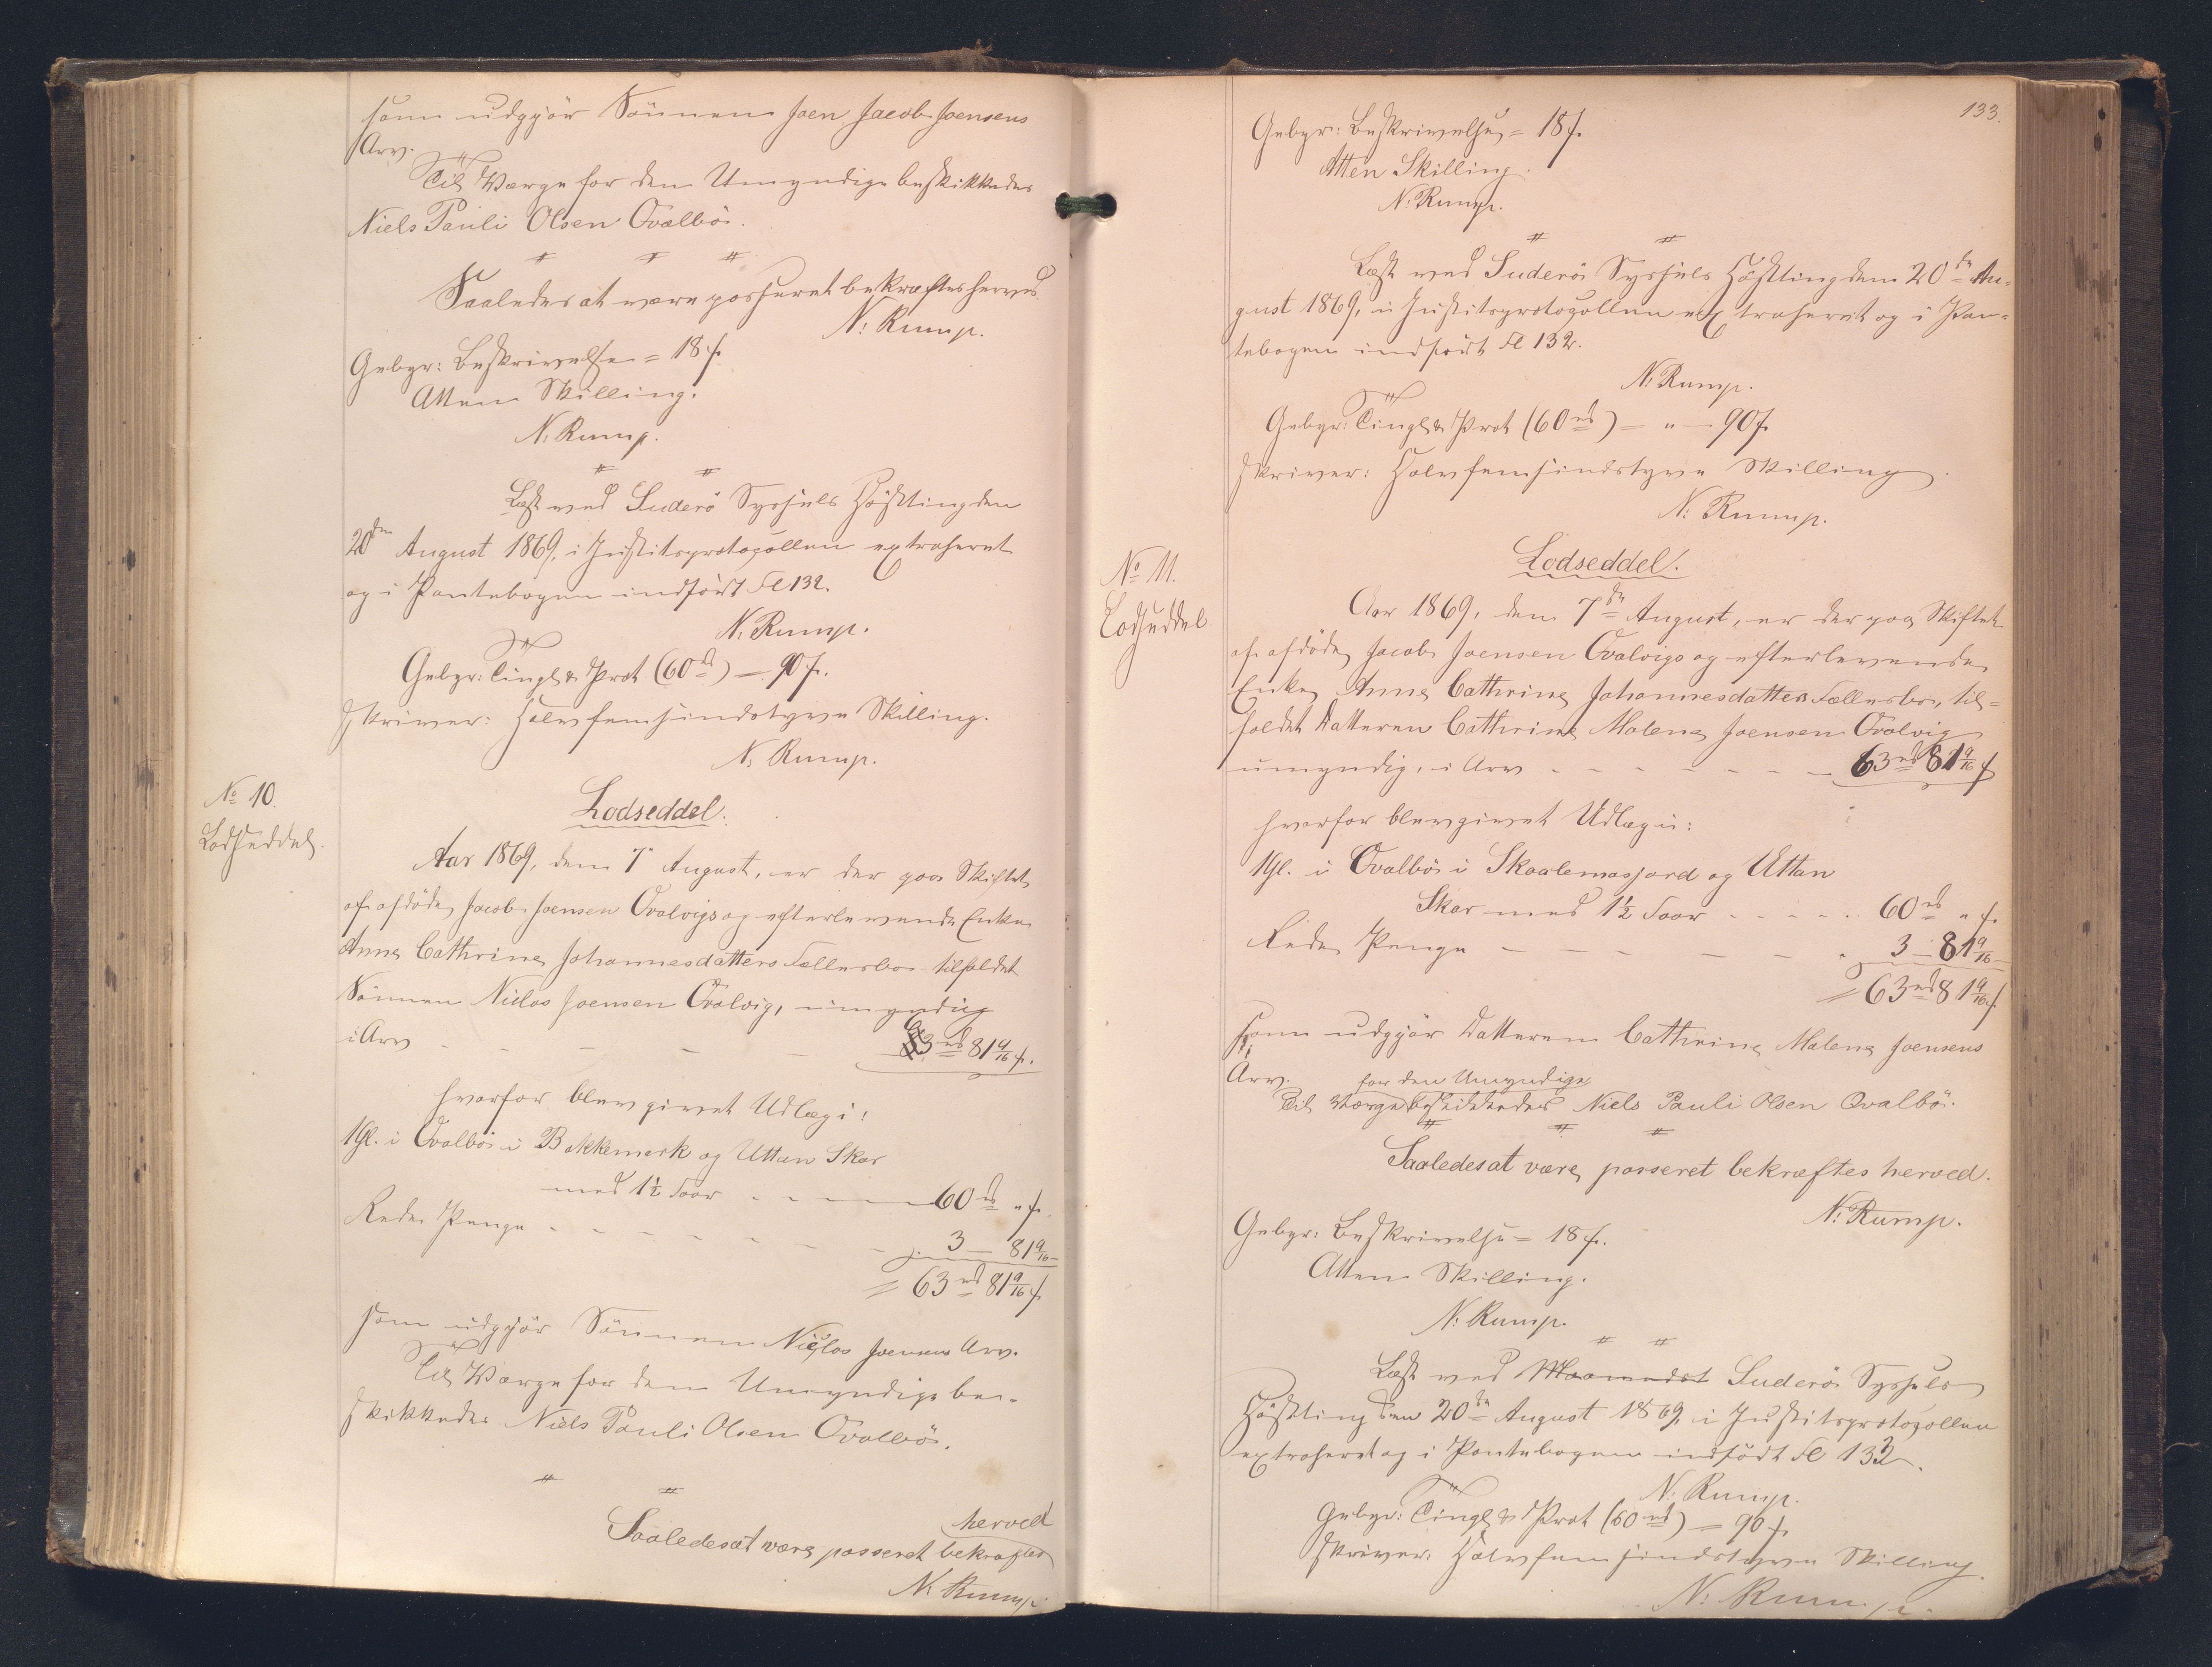 som udgjör Sönnen Joen Jacob Joensens
Arv.
Til Værge for den Umyndige beskikkedes
Niels Pauli Olsen Qvalbö.
Saaledes at være passeret bekræftes herved.
N: Rump.
Gebyr: Beskrivelse = 18 ſ.
Atten Skilling.
N. Rump.
Læst ved Suderö Syssels Hösttingden
20de August 1869, i Justitsprotocollen extraheret
og i Pantebogen indfört Fl 132.
N. Rump.
Gebyr: Tingl & Prot (60 rd) = 90 ſ.
skriver: Halvfemsindstyve Skilling.
N. Rump.
No 10.
Lodseddel.
Lodseddel.
Aar 1869, den 7' August, er der paa Skiftet
af afdöde Jacob Joensen Qvalvigs og efterlevende Enke
Anne Cathrine Johannesdatters Fællesbo tilfaldet
Sönnen Niclas Joensen Qvalvig, umyndig
i Arv - - - - 63 rd 81 9/16 ſ.
hvorfor blev givet Udlæg i:
1 Gl. i Qvalbö i Bakkemark og Uttan Skar
med 1½ Faar - - - - 60 rd " ſ.
Rede Penge - - - - - - - 3 - 81 9/16 -
= 63 rd 81 9/16 ſ
som udgjör Sönnen Niclas Joensens Arv.
Til Værge for den Umyndige be-
skikkedes Niels Pauli Olsen Qvalbö.
Saaledes at være passeret bekræftes herved
N. Rump.
133.
Gebyr: Beskrivelse = 18 ſ.
Atten Skilling.
N. Rump.
Læst ved Suderö Syssels Höstting den 20de Au-
gust 1869, i Justitsprotocollen extraheret og i Pan-
tebogen indfört Fl 132.
N. Rump.
Gebyr: Tingl & Prot (60 rd) = " - 90 ſ.
skriver: Halvfemsindstyve Skilling.
N: Rump.
No 11.
Lodseddel
Lodseddel.
Aar 1869, den 7de August, er der paa Skiftet
af afdöde Jacob Joensen Qvalvigs og efterlevende
Enke Anne Cathrine Johannesdatters Fællesbo, til-
faldet Datteren Cathrine Malene Joensen Qvalvig
umyndig, i Arv - - - - - - - 63 rd 81 9/16 ſ
hvorfor blev givet Udlæg i:
1 Gl. i Qvalbö i Skaalemasjord og Uttan
Skar med 1½ Faar - - - - - 60 rd " ſ.
Rede Penge - - - - - - 3 - 81 9/16 -
= 63 rd 81 9/16 ſ.
som udgjör Datteren Cathrine Malene Joensens
Arv.
for den Umyndige
Til Værge beskikkedes Niels Pauli Olsen Qvalbö.
Saaledes at være passeret bekræftes herved.
N: Rump.
Gebyr: Beskrivelse = 18 ſ.
Atten Skilling.
N: Rump.
Læst ved Suderö Syssels
Höstting den 20de August 1869, i Justitsprotocollen
extraheret og i Pantebogen indfört Fl 132.
N: Rump.
Gebyr: Tingl & Prot (60 rd) = 90 ſ
skriver: Halvfemsindstyve Skilling.
N: Rump.